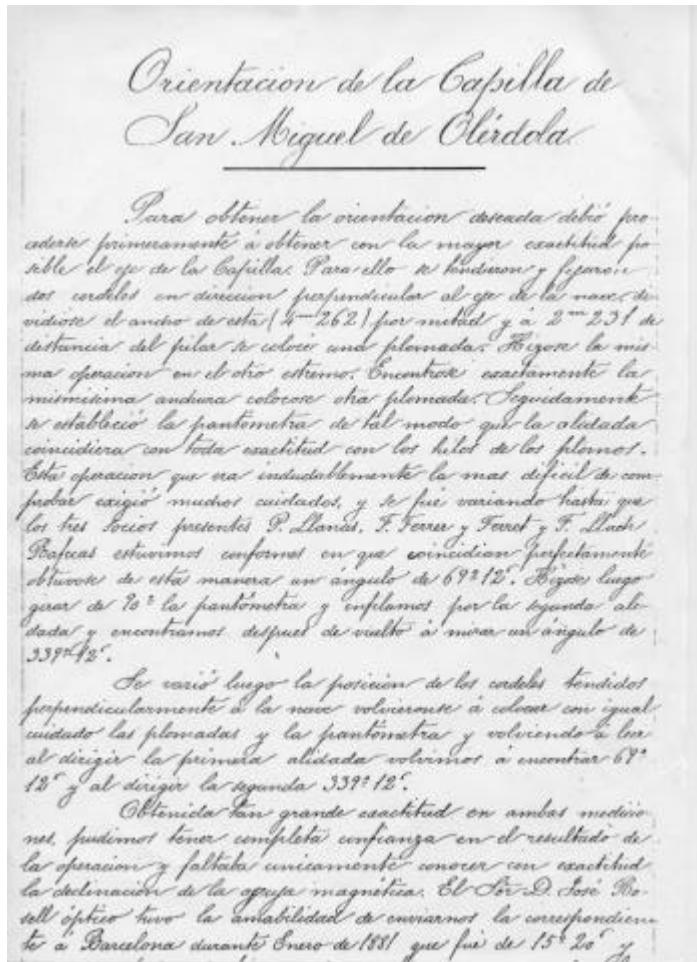 Orientacion de la Capilla de
San Miguel de Olérdola
Para obtener la orientacion deseada debió pro-
cederse primeramente á obtener con la mayor exactitud po-
sible el eje de la Capilla. Para ello se tendieron y fijaron
dos cordeles en direccion perpendicular al eje de la nave, di-
vidiose el ancho de esta (4m 262) por mitad y á 2m 231 de
distancia del pilar se coloco una plomada. Hizose la mis-
ma operacion en el otro estremo. Encontrose exactamente la
mismisima anchura colocose otra plomada. Seguidamente
se estableció la pantometra de tal modo que la alidada
coincidiera con toda exactitud con los hilos de los plomos.
Esta operacion que era indudablemente la mas dificil de com-
probar exigió muchos cuidados, y se fué variando hasta que
los tres socios presentes P. Llanas, F. Ferrer y Ferret y F. Llach
estuvimos conformes en que coincidian perfectamente
obtuvose de esta manera un ángulo de 69º 12'. Hizose luego
girar de 90º la pantómetra y enfilamos por la segunda ali-
dada y encontramos despues de vuelto á mirar un ángulo de
339º 12'.
Se varió luego la posicion de los cordeles tendidos
perpendicularmente á la nave volvieronse á colocar con igual
cuidado las plomadas y la pantómetra y volviendo á leer
al dirigir la primera alidada volvimos á encontrar 69º
12' y al dirigir la segunda 339º 12'.
Obtenida tan grande exactitud en ambas medicio-
nes, pudimos tener completa confianza en el resultado de
la operacion y faltaba unicamente conocer con exactitud
la declinacion de la aguja magnética. El Sor D. José Ro-
sell óptico tuvo la amabilidad de enviarnos la correspondien-
te á Barcelona durante Enero de 1881 que fué de 15º 20' y